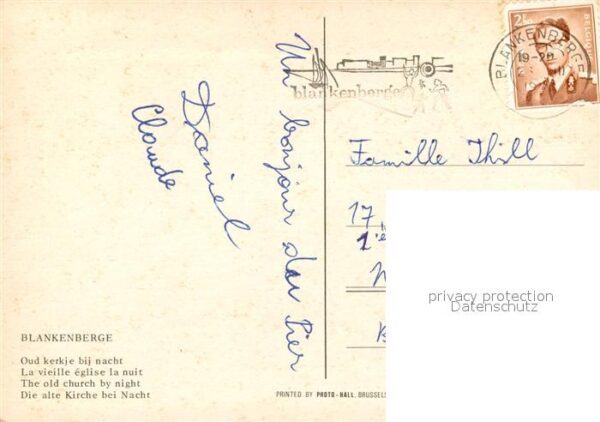 Un bonjour du Pier
Daniel
Claude
blankenberge
BLANKENBERGE
19-20
Famille Thill
17,
1
privacy protection
Datenschutz
BLANKENBERGE
Oud kerkje bij nacht
La vieille église la nuit
The old church by night
Die alte Kirche bei Nacht
PRINTED BY PHOTO-HALL, BRUSSELS